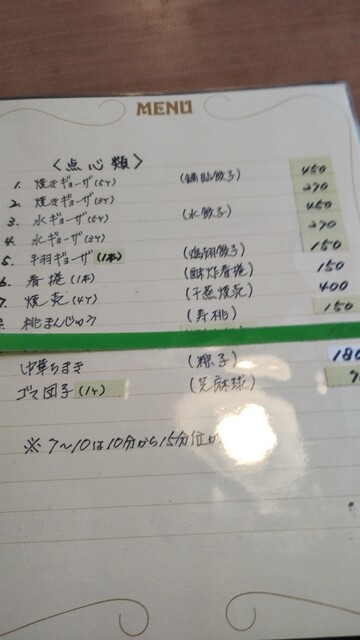 MENU
<点心類>
1. 焼きギョーザ(5ケ) (鍋貼餃子) 450
2. 焼きギョーザ(3ケ) 270
3. 水ギョーザ(5ケ) (水餃子) 450
4. 水ギョーザ(3ケ) 270
5. 手羽ギョーザ(1本) (鶏翅餃子) 150
6. 春捲(1本) (酥炸春捲) 150
7. 焼売(4ケ) (干蒸焼売) 400
桃まんじゅう (寿桃) 150
中華ちまき (粽子) 180
ゴマ団子(1ケ) (芝麻球)
※ 7～10は10分から15分位か